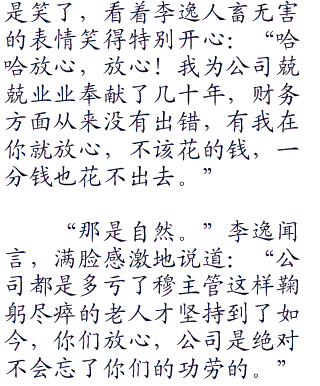 是笑了，看着李逸人畜无害
的表情笑得特别开心：“哈
哈放心，放心！我为公司兢
兢业业奉献了几十年，财务
方面从来没有出错，有我在
你就放心，不该花的钱，一
分钱也花不出去。”
“那是自然。”李逸闻
言，满脸感激地说道：“公
司都是多亏了穆主管这样鞠
躬尽瘁的老人才坚持到了如
今，你们放心，公司是绝对
不会忘了你们的功劳的。”